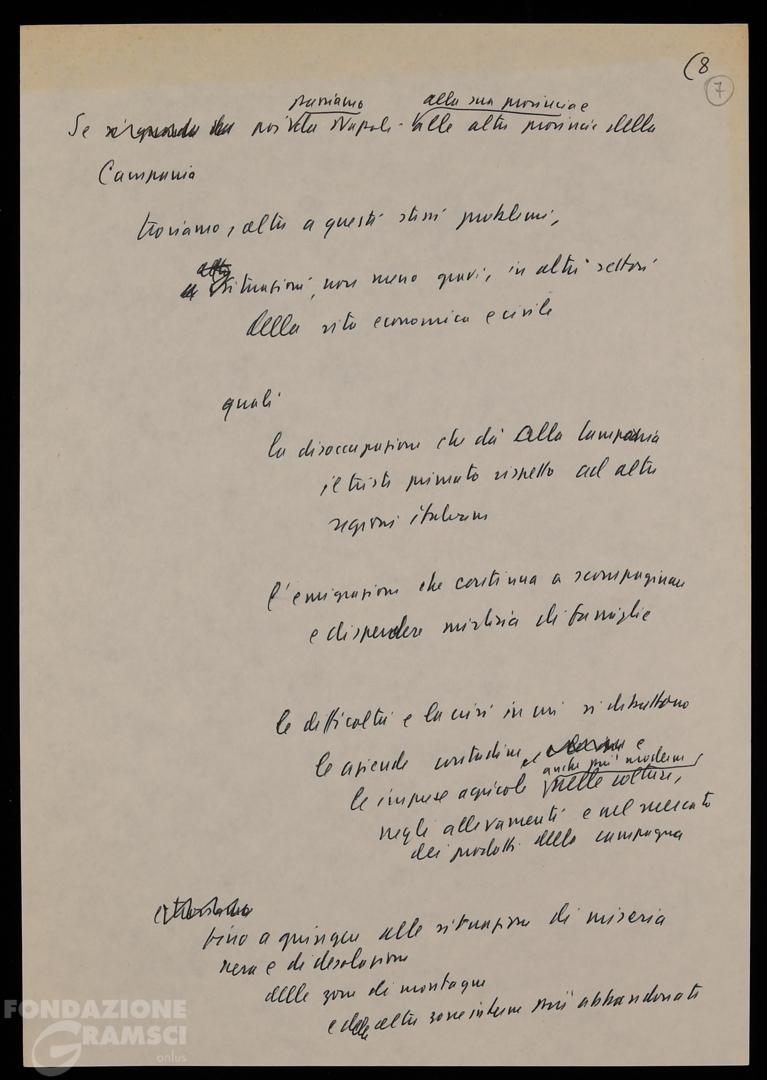 (8
7
passiamo alla sua provincia e
Se poi da Napoli alle altre provincie della
Campania
troviamo, oltre a questi stessi problemi,
situazioni, non meno gravi, in altri settori
della vita economica e civile
quali
la disoccupazione che dà alla Campania
il triste primato rispetto ad altre
regioni italiane
l'emigrazione che continua a scompaginare
e disperdere migliaia di famiglie
le difficoltà e la crisi in cui si dibattono
le aziende contadine e
anche più moderne,
le imprese agricole nelle colture,
negli allevamenti e nel mercato
dei prodotti della campagna
fino a giungere alle situazioni di miseria
nera e di desolazione
delle zone di montagna
e delle altre zone interne più abbandonate
FONDAZIONE
GRAMSCI
onlus